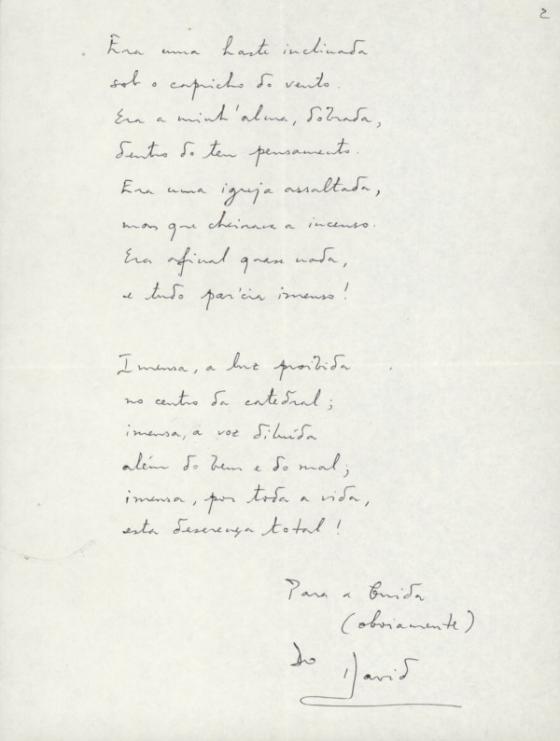 2
Era uma haste inclinada
sob o capricho do vento.
Era a minh'alma, dobrada,
dentro do teu pensamento.
Era uma igreja assaltada,
mas que cheirava a incenso.
Era afinal quase nada,
e tudo par'cia imenso!
Imensa, a luz proibida
no centro da catedral;
imensa, a voz diluída
além do bem e do mal;
imensa, por toda a vida,
esta descrença total!
Para a Guida
(obviamente)
Do David